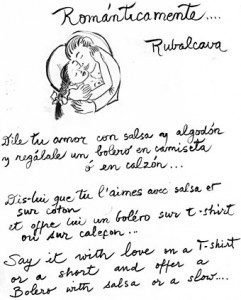 Románticamente....
Rubalcava
Dile tu amor con salsa y algodón
y regálale un bolero en camiseta
ó en calzón...
Dis-lui que tu l'aimes avec salsa et
sur coton
et offre lui un boléro sur t-shirt
ou sur caleçon...
Say it with love in a T-shirt
or a short and offer a
Bolero with salsa or a slow....